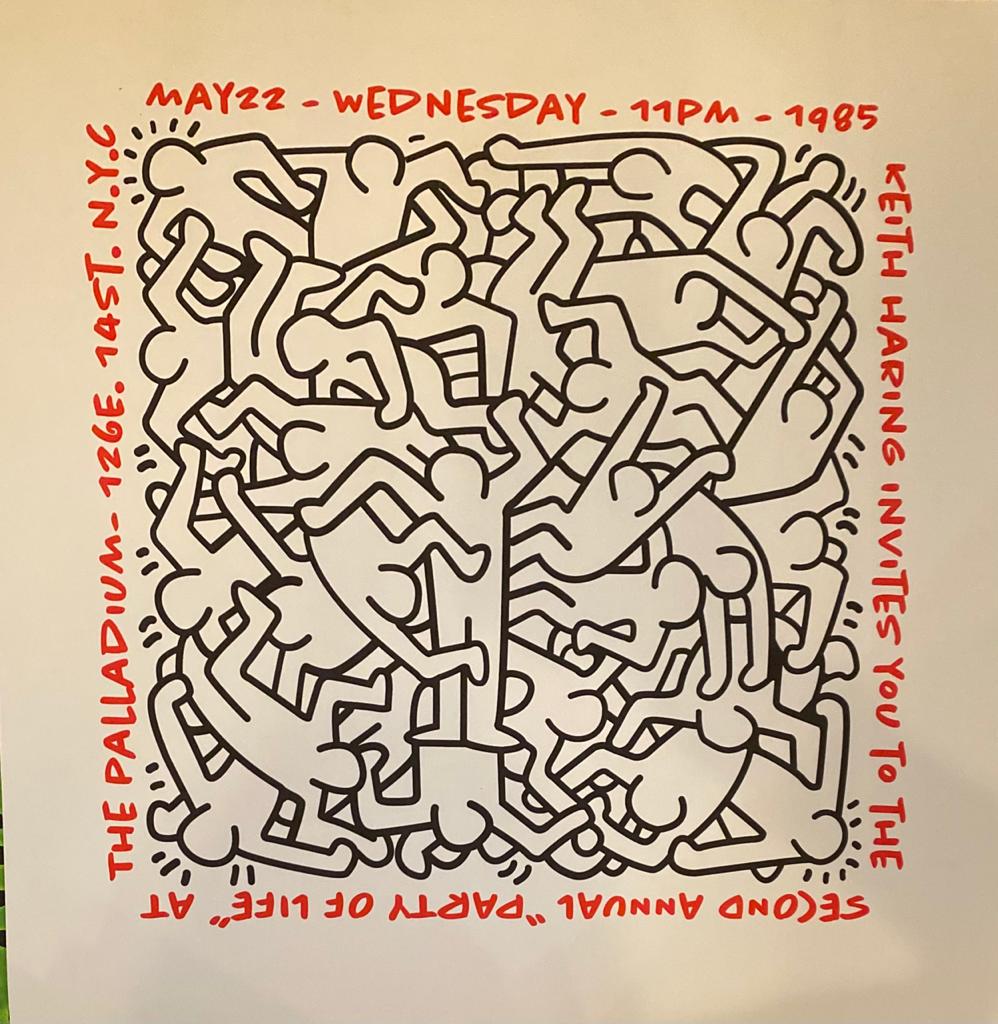 MAY22 - WEDNESDAY - 11PM - 1985
KEITH HARING INVITES YOU TO THE
SECOND ANNUAL "PARTY OF LIFE" AT
THE PALLADIUM- 126E. 14ST. N.Y.C